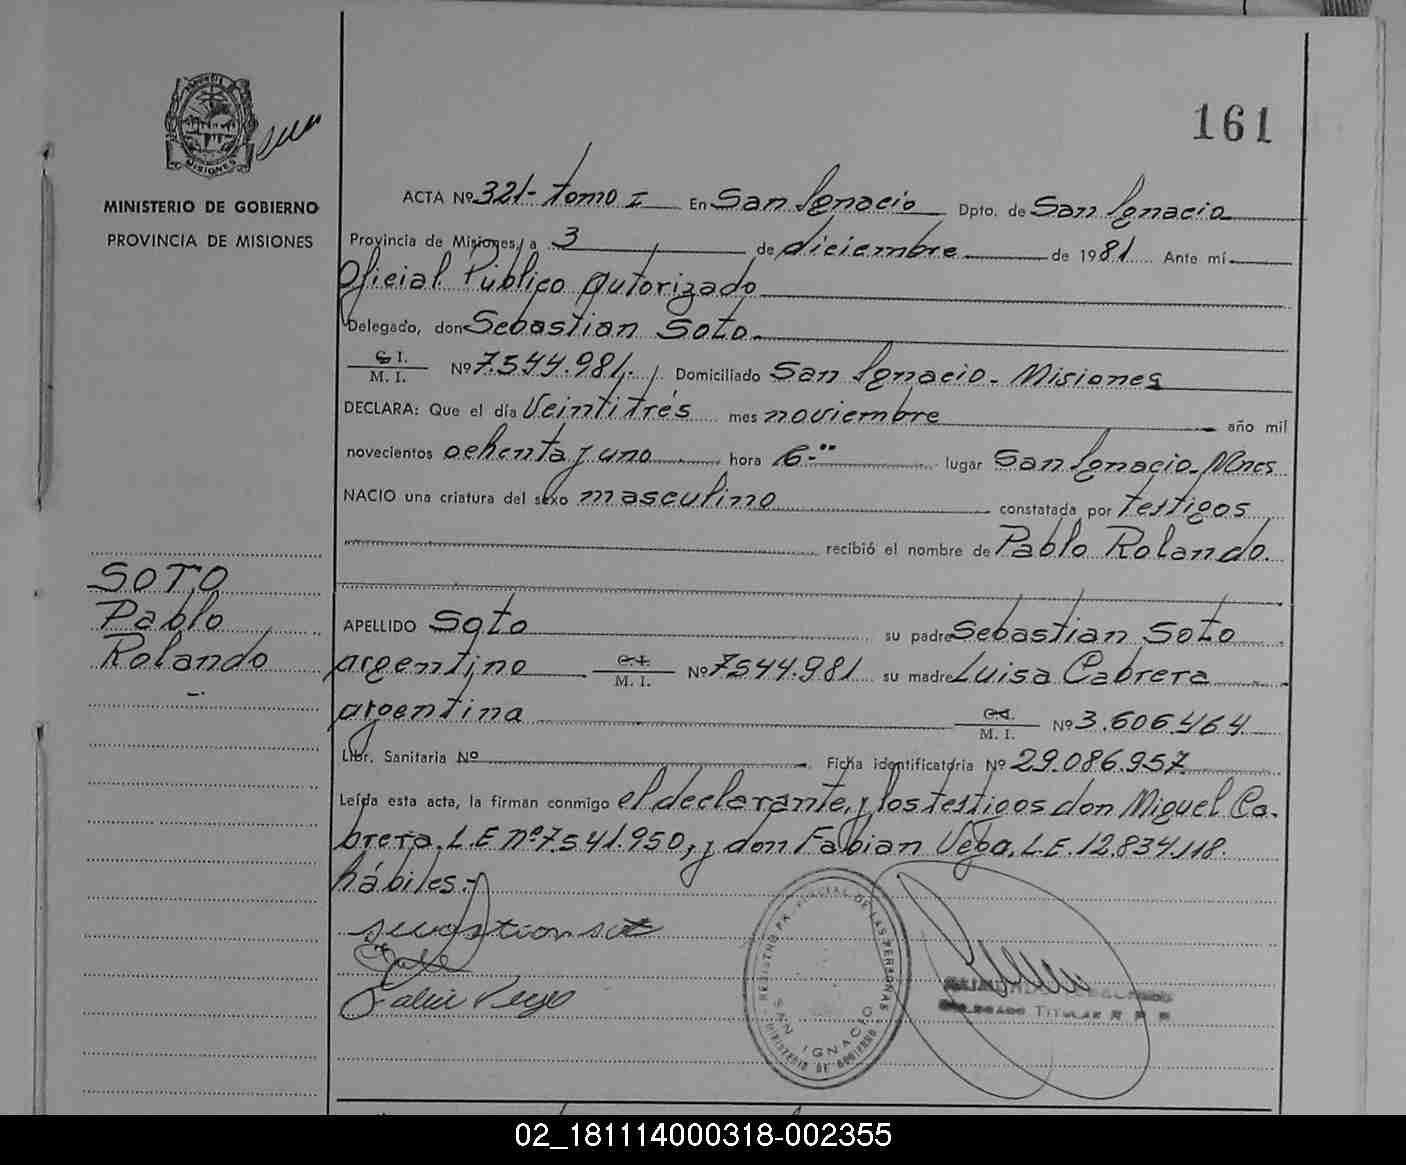 161
PROVINCIA DE MISIONES
MINISTERIO DE GOBIERNO
PROVINCIA DE MISIONES
ACTA Nº 321- tomo I En San Ignacio Dpto. de San Ignacio
Provincia de Misiones, a 3 de diciembre de 1981 Ante mí
Oficial Público Autorizado
Delegado, don Sebastian Soto.
C. I.
M. I. Nº 7.544.981. Domiciliado San Ignacio - Misiones
DECLARA: Que el día Veintitrés mes noviembre año mil
novecientos ochenta y uno hora lugar San Ignacio - Mnes
NACIO una criatura del sexo masculino constatada por testigos
recibió el nombre de Pablo Rolando.
SOTO
Pablo
Rolando
APELLIDO Soto su padre Sebastian Soto
argentino C. I.
M. I. Nº 7544.981 su madre Luisa Cabrera
argentina C. I.
M. I. Nº 3.606.464
Libr. Sanitaria Nº Ficha identificatoria Nº 29.086.957
Leída esta acta, la firman conmigo el declarante, y los testigos don Miguel Ca-
brera. L.E nº 7.541.950, y don Fabian Vega. L.E. 12.834.118.
hábiles.-
REGISTRO PROVINCIAL DE LAS PERSONAS
SAN IGNACIO
MINISTERIO DE GOBIERNO
DELEGADO TITULAR R P P
02_181114000318-002355